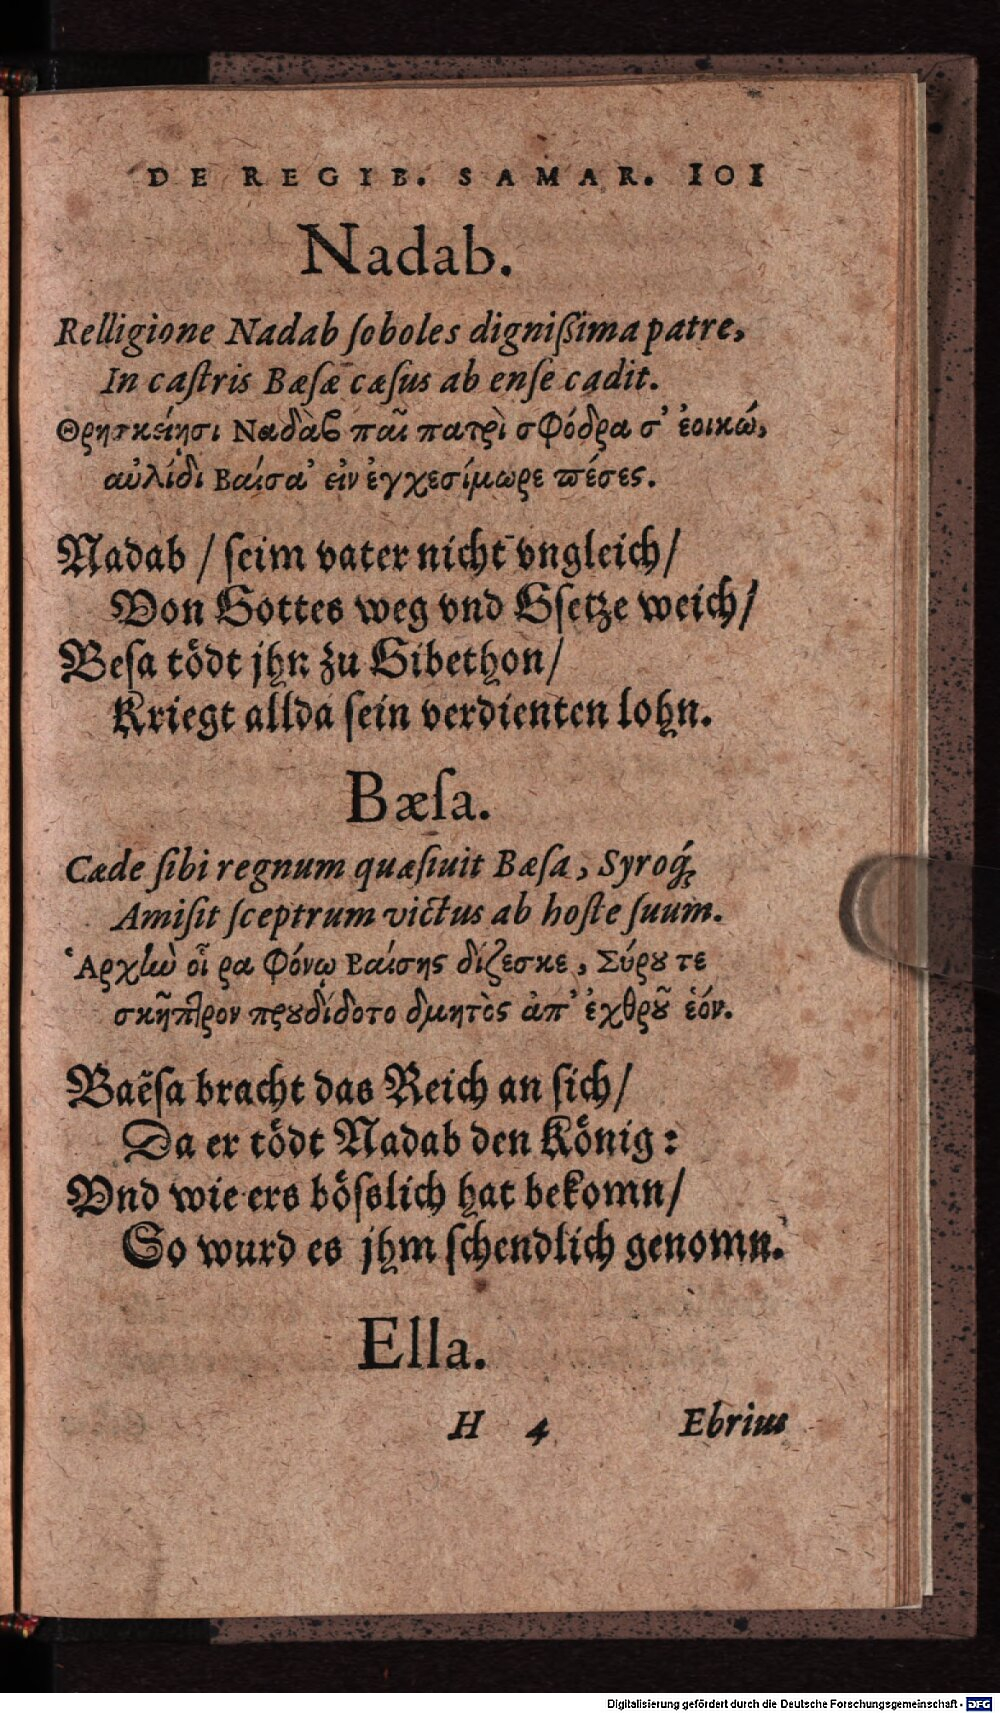 DE REGIB. SAMAR. 101
Nadab.
Relligione Nadab ſoboles digniſſima patre,
In caſtris Bæſæ cæſus ab enſe cadit.
Θρησκείῃσι Ναδὰβ παῖ πατρὶ σφόδρα σ' ἐοικώ,
αὐλίδι Βαίσα' εἰν ἐγχεσίμωρε πέσες.
Nadab / ſeim vater nicht vngleich/
Von Gottes weg vnd Gſetze weich/
Beſa tödt jhn zu Gibethon/
Kriegt allda ſein verdienten lohn.
Bæſa.
Cæde ſibi regnum quæſiuit Bæſa, Syroq́;
Amiſit ſceptrum victus ab hoſte ſuum.
Ἀρχὴν οἷ ρα φόνῳ Βαίσης δίζεσκε, Σύρου τε
σκῆπτρον προυδίδοτο δμητὸς ἀπ' ἐχθροῦ ἑόν.
Baëſa bracht das Reich an ſich/
Da er tödt Nadab den König:
Vnd wie ers böſslich hat bekomn/
So wurd es jhm ſchendlich genomn.
Ella.
H 4 Ebrius
Digitalisierung gefördert durch die Deutsche Forschungsgemeinschaft - DFG